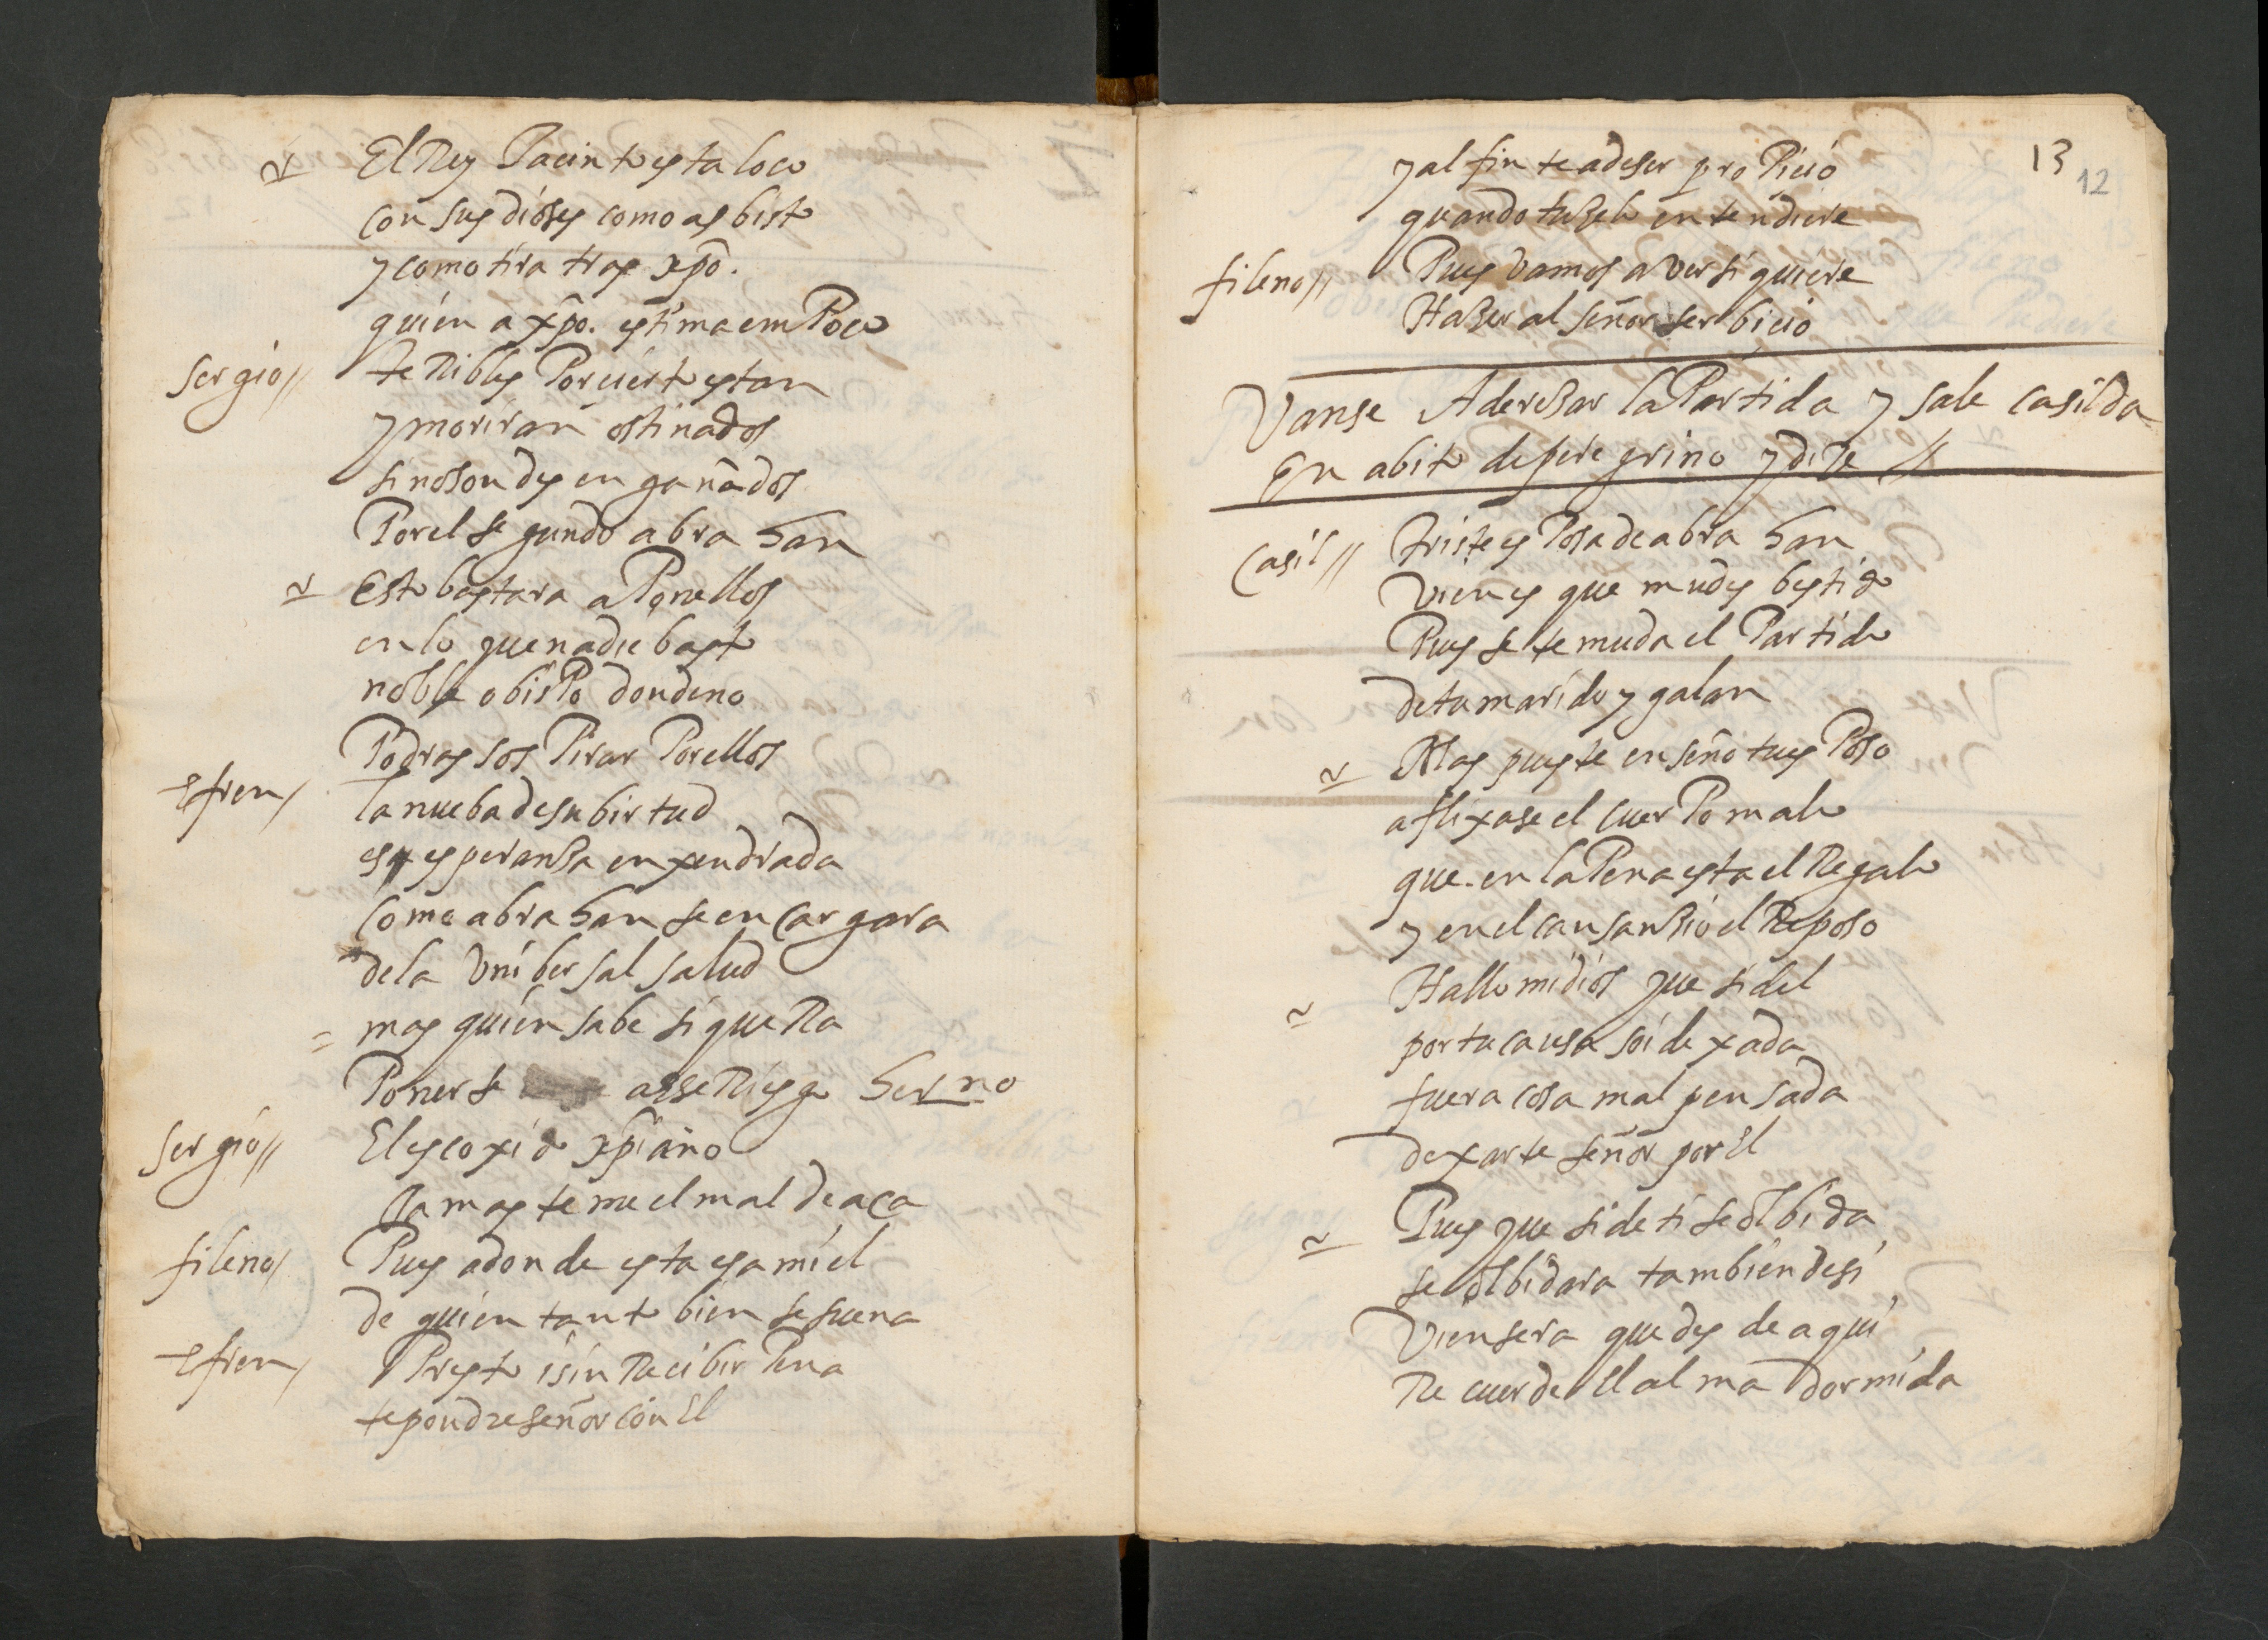 El Rey Jacinto esta loco
con sus dioses como as bisto
y como tira tras xpo.
quien a xpo. estima em Poco
sergio// teRibles Porcierto estan
y moriran ostinados
sino son desengañados
Por el segundo abrahan
Esto bastara aPonellos
en lo que nadie basto
noble obisPo donde no
Podras sosPirar Porellos
efren/ la nueba de su birtud
es esperanza enxendrada
como abrahan se encargara
de la Unibersal salud
mas quien sabe si queRa
Ponerse a esse Riesgo herno
sergio// El escoxido xpiano
Jamas teme el mal de aca
fileno/ Pues adonde esta esa miel
de quien tanto bien se suena
efren/ Presto i sin Recibir Pena
te pondre señor con El
13
12
y al fin te a de ser proPicio
quando tu zelo entendiere
fileno// Pues vamos a ver si quiere
Hazer al señor serbicio
Vanse Aderezar la Partida y sale casilda
En abito de peregrino y dize //
casil// triste esPosa de abrahan
vien es que mudes bestido
Pues se te muda el Partido
de tu marido y galan
Mas pues te enseño tu esPoso
aflixase el cuerPo malo
que en la Pena esta el Regalo
y en el cansanzio el Reposo
Hallo mi dios que si del
por tu causa soi dexada
fuera cosa mal pensada
dexarte señor por El
Pues que si de ti se olbida
se olbidara tambien de si
vien sera que des de aqui
Recuerde El alma dormida